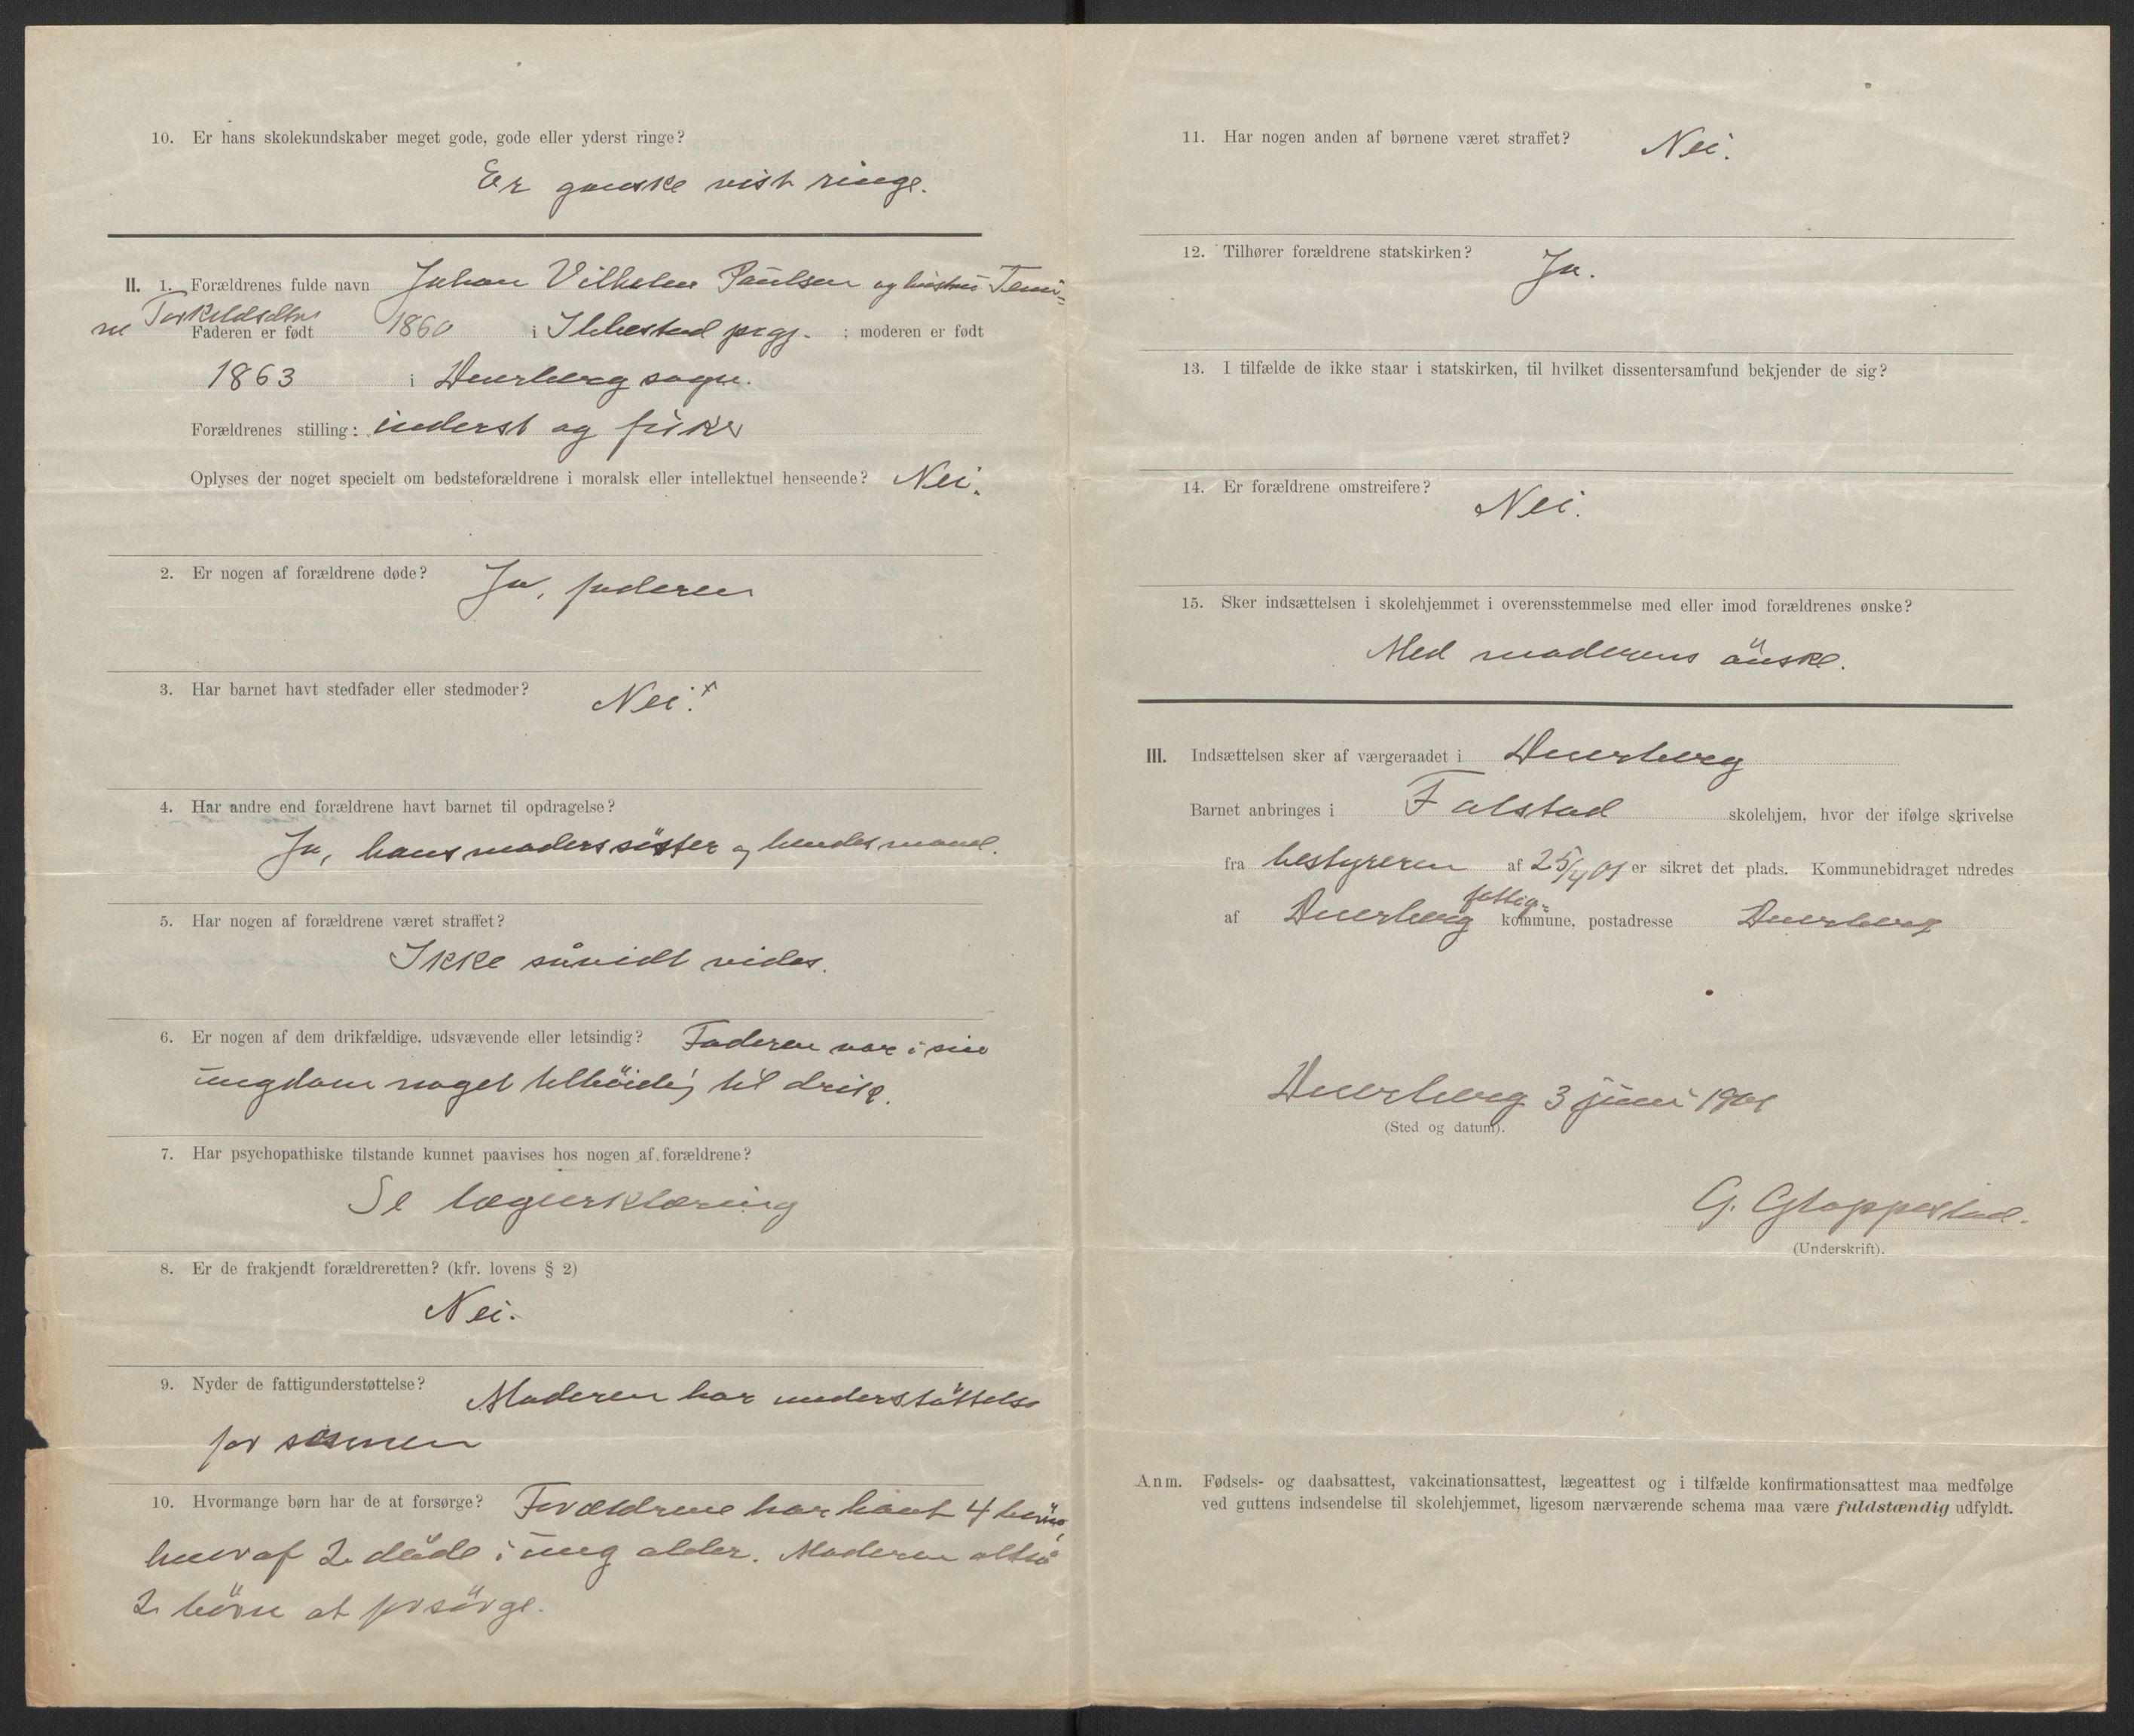 10. Er hans skolekundskaber meget gode, gode eller yderst ringe?
Er ganske vist ringe.
II. 1. Forældrenes fulde navn Johan Vilhelm Paulsen og hustru Temi-
ne Torkildsdtr
Faderen er født 1860 i Ibbestad prgj. ; moderen er født
1863 i Dverberg sogn.
Forældrenes stilling: inderst og fisker
Oplyses der noget specielt om bedsteforældrene i moralsk eller intellektuel henseende? Nei.
2. Er nogen af forældrene døde? Ja, faderen
3. Har barnet havt stedfader eller stedmoder? Nei. x
4. Har andre end forældrene havt barnet til opdragelse?
Ja, hans moders søster og hendes mand.
5. Har nogen af forældrene været straffet?
Ikke såvidt vides.
6. Er nogen af dem drikfældige, udsvævende eller letsindig? Faderen var i sin
ungdom noget tilbøielig til drik.
7. Har psychopathiske tilstande kunnet paavises hos nogen af forældrene?
Se lægeerklæring
8. Er de frakjendt forældreretten? (kfr. lovens § 2)
Nei.
9. Nyder de fattigunderstøttelse? Moderen har understöttelse
for sønnen
10. Hvormange børn har de at forsørge? Forældrene har havt 4 börn,
hvoraf 2 døde i ung alder. Moderen altså
2 börn at forsörge.
11. Har nogen anden af børnene været straffet? Nei.
12. Tilhører forældrene statskirken? Ja.
13. I tilfælde de ikke staar i statskirken, til hvilket dissentersamfund bekjender de sig?
14. Er forældrene omstreifere? Nei.
15. Sker indsættelsen i skolehjemmet i overensstemmelse med eller imod forældrenes ønske?
Med moderens önske.
III. Indsættelsen sker af værgeraadet i Dverberg
Barnet anbringes i Falstad skolehjem, hvor der ifølge skrivelse
fra bestyreren af 25/4 01 er sikret det plads. Kommunebidraget udredes
af Dverberg fattig- kommune, postadresse Dverberg
Dverberg 3 juni 1901
(Sted og datum).
G. Gloppestad.
(Underskrift).
Anm. Fødsels- og daabsattest, vakcinationsattest, lægeattest og i tilfælde konfirmationsattest maa medfølge
ved guttens indsendelse til skolehjemmet, ligesom nærværende schema maa være fuldstændig udfyldt.